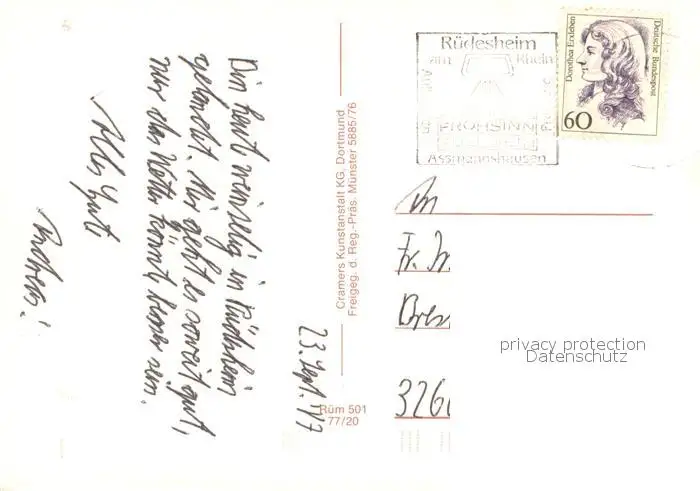 23. Sept.
Bin heut weinselig in Rüdesheim
gelandet. Mir geht es soweit gut,
nur das Wetter könnt besser sein.
Alles Gute
Andreas!
Cramers Kunstanstalt KG, Dortmund
Freigeg. d. Reg.-Präs. Münster 5885/76
Rüm 501
77/20
Rüdesheim
am Rhein
FROHSINN
Assmannshausen
Dorothea Erxleben
Deutsche Bundespost
60
An
Fr.
326
privacy protection
Datenschutz